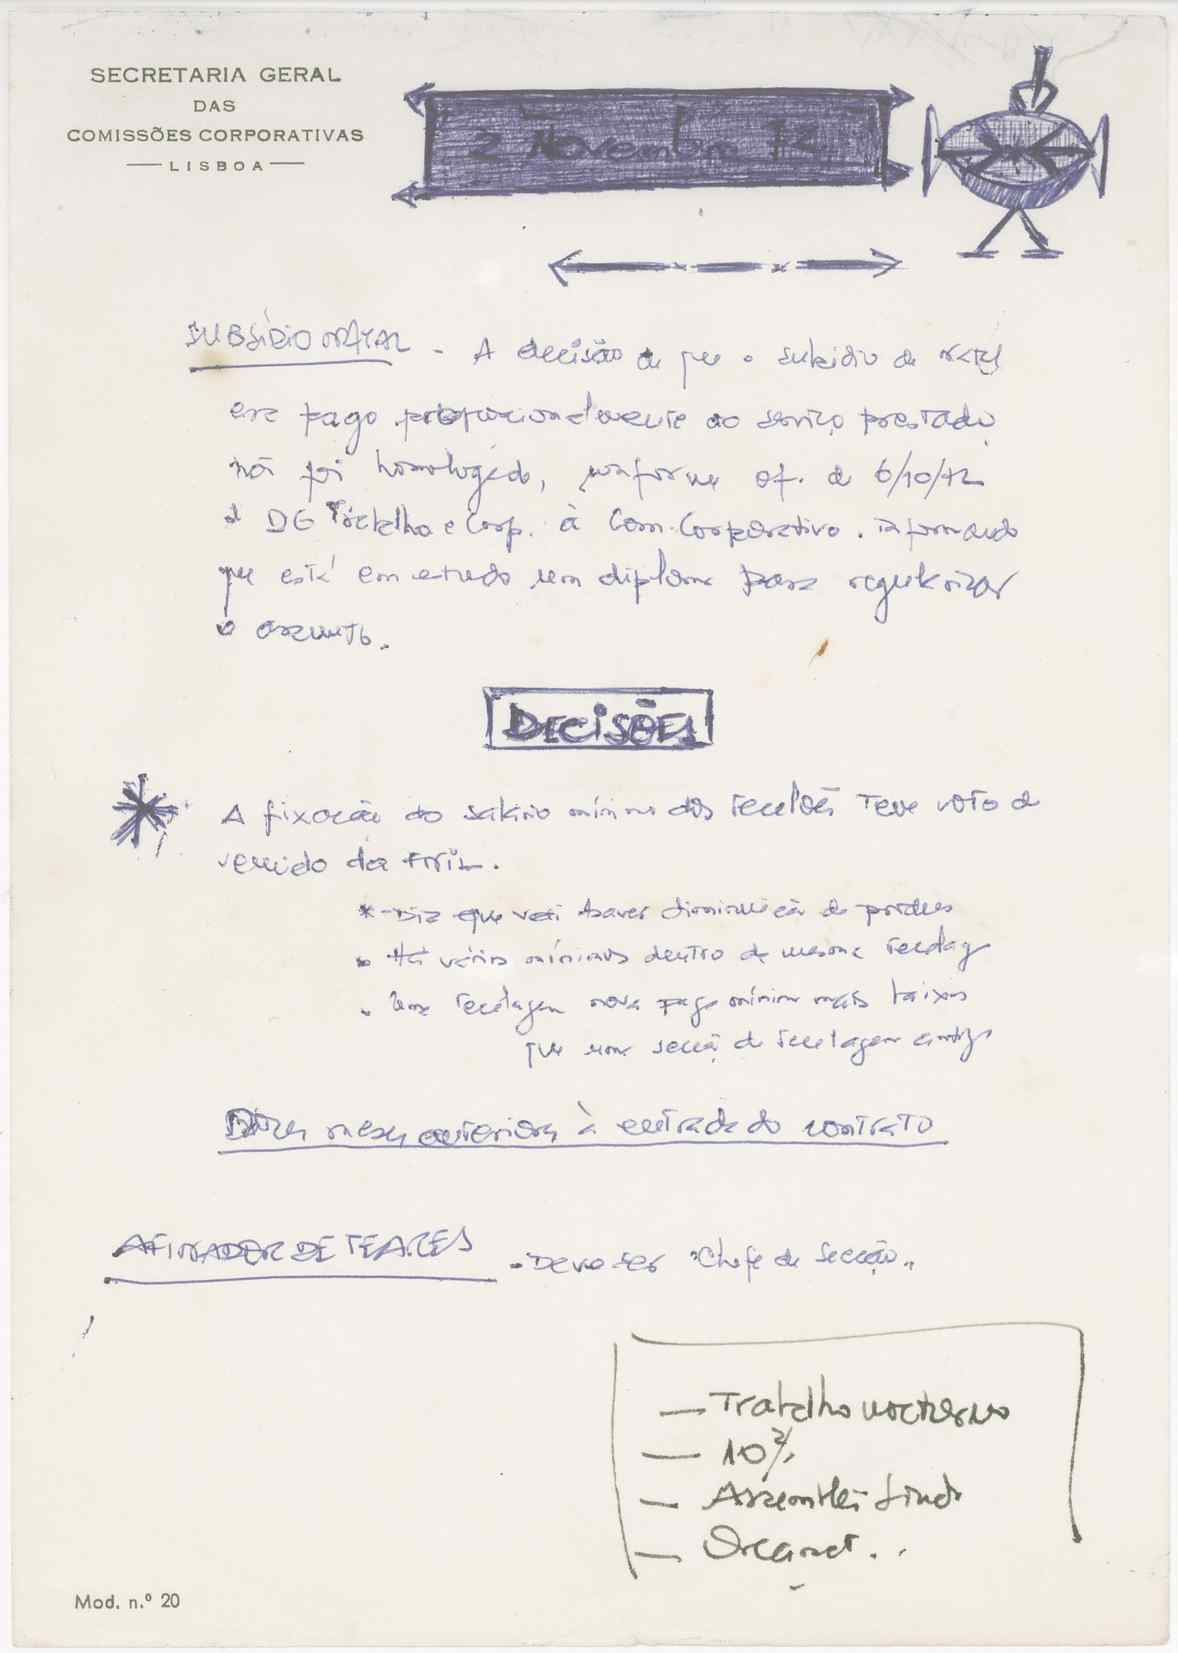 SECRETARIA GERAL
DAS
COMISSÕES CORPORATIVAS
LISBOA
2 Novembro 72
SUBSÍDIO NATAL - A decisão de que o subsídio de natal
era pago proporcionalmente ao serviço prestado
não foi homologado, conforme of. de 6/10/72
d DG Trabalho e Corp. à Com. Corporativa. informando
que está em estudo um diploma para regularizar
o assunto.
DECISÕES
* A fixação do salário mínimo dos tecelões teve voto de
vencido da
*- Diz que vai haver diminuição de
• Há vários mínimos dentro da mesma tecelag
• Uma tecelagem nova paga mínimo mais baixos
que uma secção de tecelagem antiga
meses anteriores à entrada do contrato
AFINADOR DE TEARES - Deve ser "Chefe de Secção"
— Trabalho nocturno
— 10%
— Assembleia Sind
— Organ
Mod. n.º 20